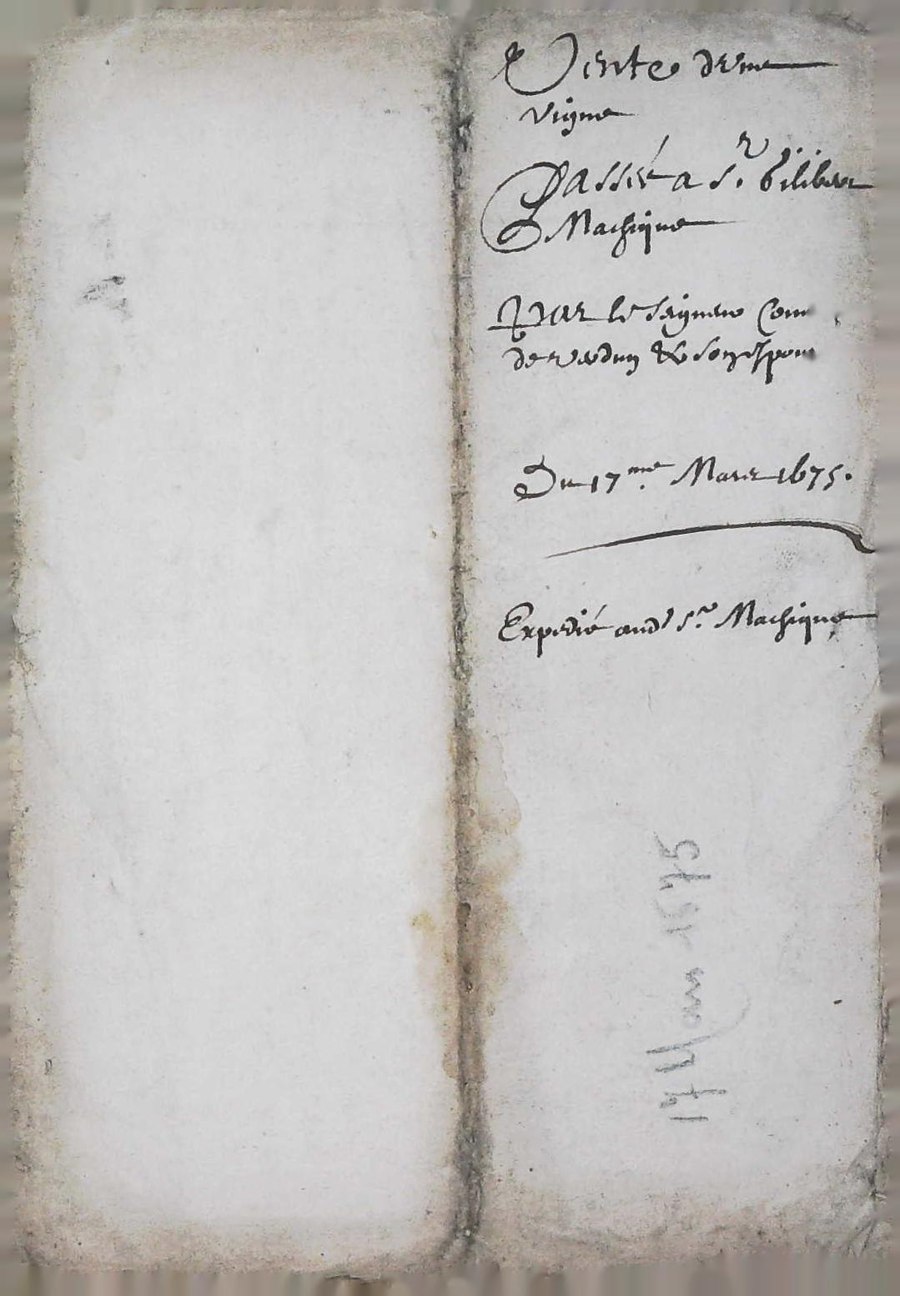 Vente d'une
vigne
Passée a Sr. Filiber
Machique
Par le Seigneur Com
de Verdun & son espou
Du 17me. Mars 1675.
Expedié aud Sr. Machique
17 Mars 1675